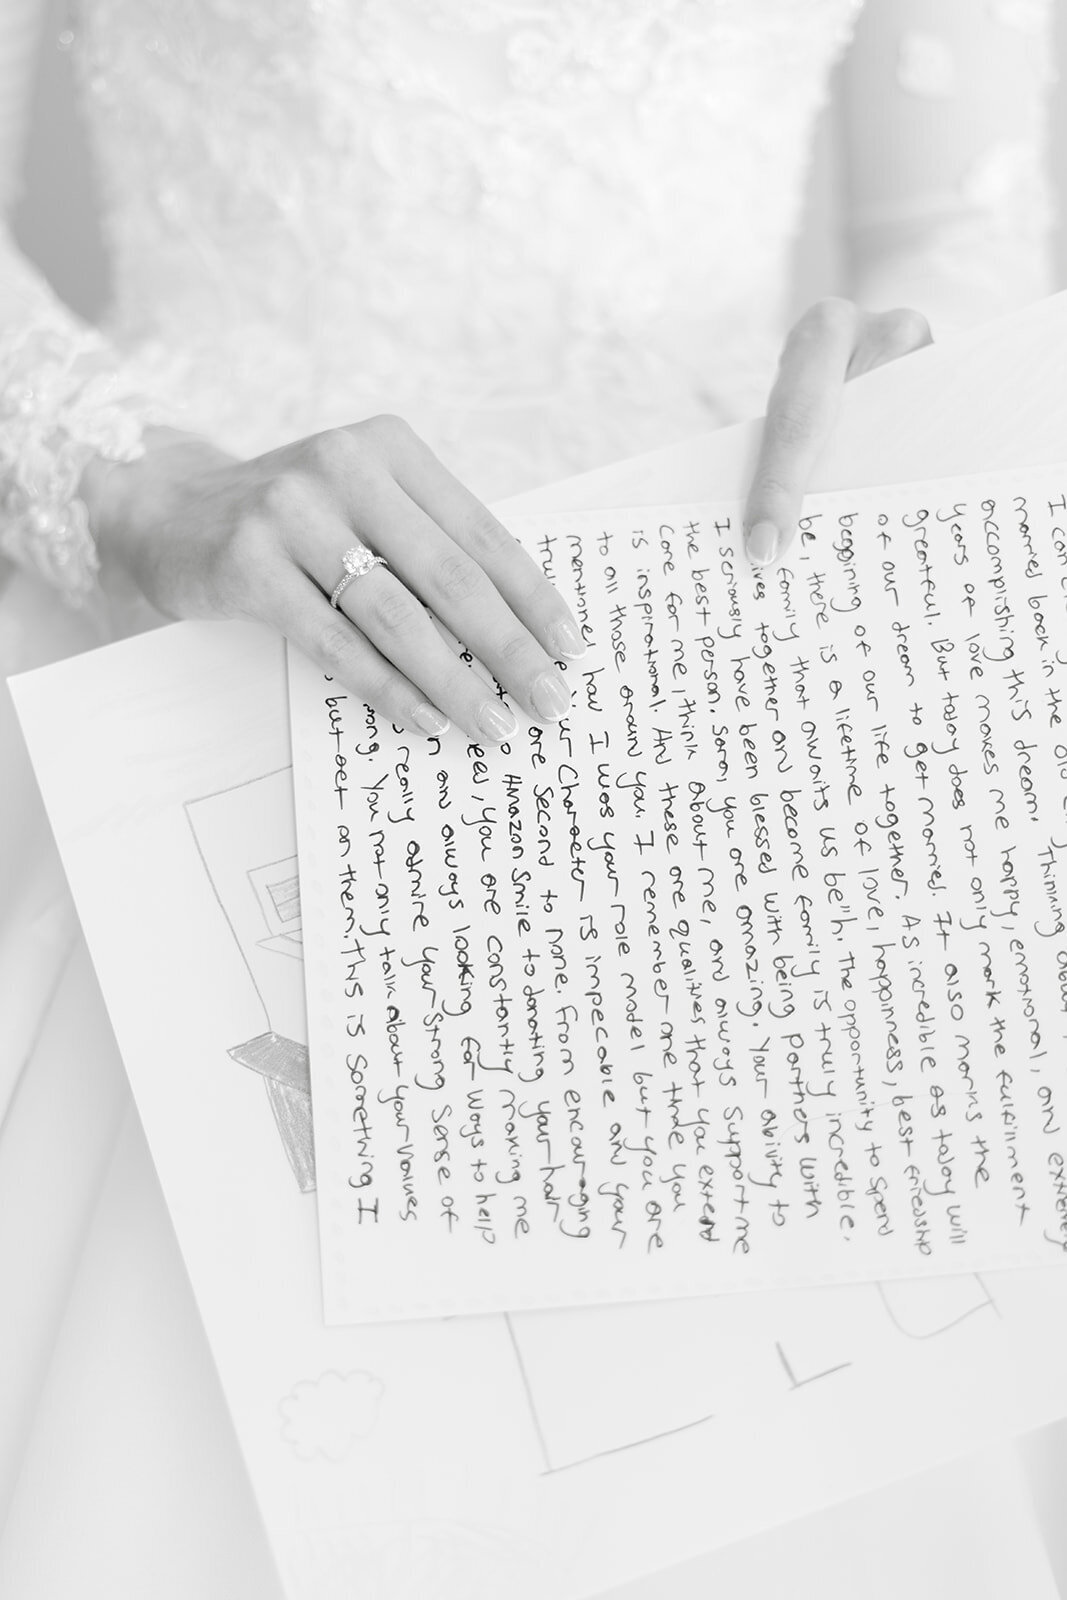 I can
married back in the old Thinking about
accomplishing this dream,
years of love makes me happy, emotional, and extremely
greatful. But today does not only mark the fulfillment
of our dream to get married. It also marks the
beggining of our life together. As incredible as today will
be, there is a lifetime of love, happinness, best friendship
family that awaits us both. The opportunity to spend
together and become family is truly incredible.
I seriously have been blessed with being partners with
the best person. Sara, you are amazing. Your ability to
care for me, think about me, and always support me
is inspirational. And these are qualities that you extend
to all those aroun you. I remember one time you
mentioned how I was your role model but you are
Character is impeccable and your
are second to none. From encouraging
Amazon Smile to donating your hair
you are constantly making me
an always looking for ways to help
really admire your strong sense of
You not only talk about your values
but act on them. This is something I